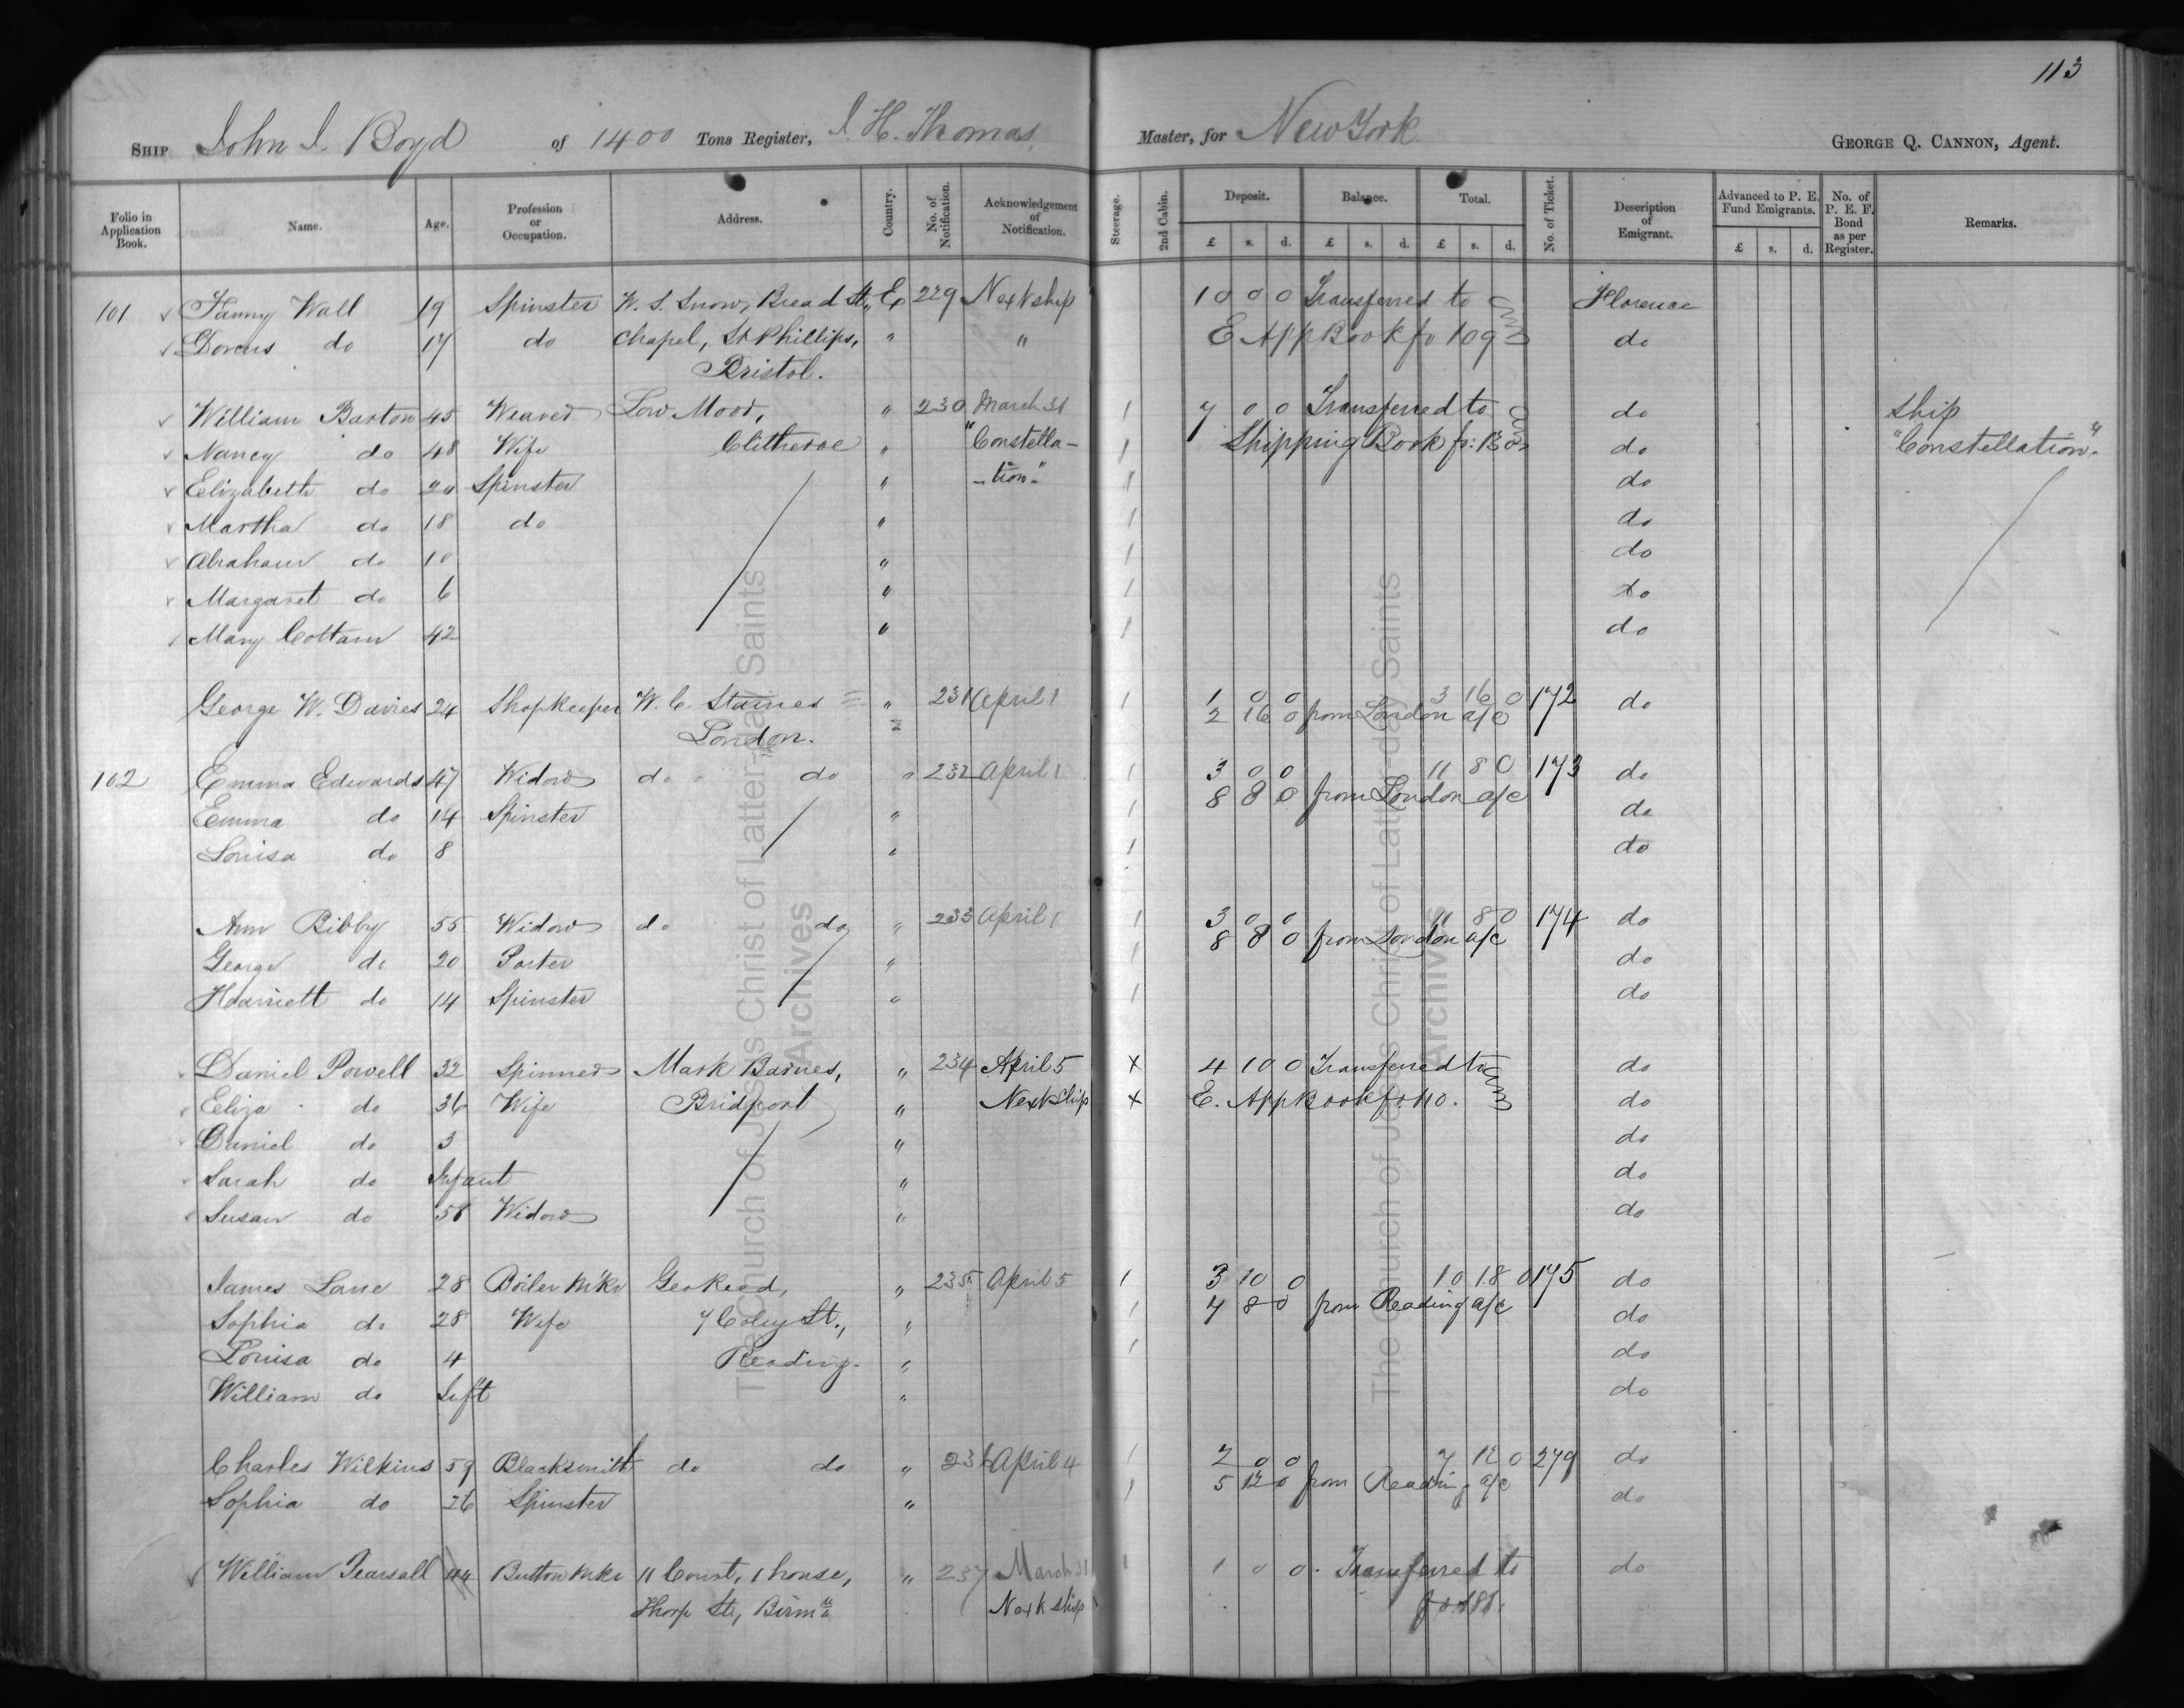 113
SHIP John J. Boyd of 1400 Tons Register, J. H. Thomas, Master, for New York GEORGE Q. CANNON, Agent.
Folio in Application Book. Name. Age. Profession or Occupation. Address. Country. No. of Notification. Acknowledgement of Notification. Steerage. 2nd Cabin. Deposit. Balance. Total. No. of Ticket. Description of Emigrant. Advanced to P. E. Fund Emigrants. No. of P. E. F. Bond as per Register. Remarks.
£ s. d. £ s. d. £ s. d. £ s. d.
101 Fanny Wall 19 Spinster W. S. Snow, Bread St., E 229 Next ship 10 0 0 Transferred to Florence
Dorcus do 17 do Chapel, St Phillips, " " E App Book fo 109 do
Bristol.
William Barton 45 Weaver Low Moor, " 230 March 31 1 7 0 0 Transferred to do Ship
Nancy do 48 Wife Clitheroe " "Constella- 1 Shipping Book fo: do "Constellation".
Elizabeth do 20 Spinster " -tion" 1 do
Martha do 18 do " 1 do
Abraham do 10 " 1 do
Margaret do 6 " 1 do
Mary Cottam 42 " 1 do
George W. Davies 24 Shopkeeper W. C. Staines " 231 April 1 1 1 0 0 3 16 0 172 do
London. 2 16 0 from London a/c
102 Emma Edwards 47 Widow do do " 232 April 1 1 3 0 0 11 8 0 173 do
Emma do 14 Spinster " 1 8 8 0 from London a/c do
Louisa do 8 " 1 do
Ann Bibby 55 Widow do do " 233 April 1 1 3 0 0 11 8 0 174 do
8 8 0 from London a/c
George do 20 Porter " 1 do
Harriett do 14 Spinster " 1 do
Daniel Powell 32 Spinner Mark Barnes, " 234 April 5 x 4 10 0 Transferred to do
Eliza do 36 Wife Bridport " Next Ship x E. App Book fo 110. do
Daniel do 3 " do
Sarah do Infant " do
Susan do 58 Widow " do
James Lane 28 Boiler Mkr Geo Read, " 235 April 5 1 3 10 0 10 18 0 175 do
Sophia do 28 Wife 7 Coley St., " 1 7 8 0 from Reading a/c do
Louisa do 4 Reading. " 1 do
William do Inft " do
Charles Wilkins 59 Blacksmith do do " 236 April 4 1 2 0 0 7 12 0 279 do
Sophia do 26 Spinster " 1 5 12 0 from Reading a/c do
William Pearsall 44 Button Mkr 11 Court, 1 house, " 237 March 31 1 1 0 0 Transferred to do
Thorp St., Birm Next ship
The Church of Jesus Christ of Latter-day Saints
Archives
The Church of Jesus Christ of Latter-day Saints
Archives